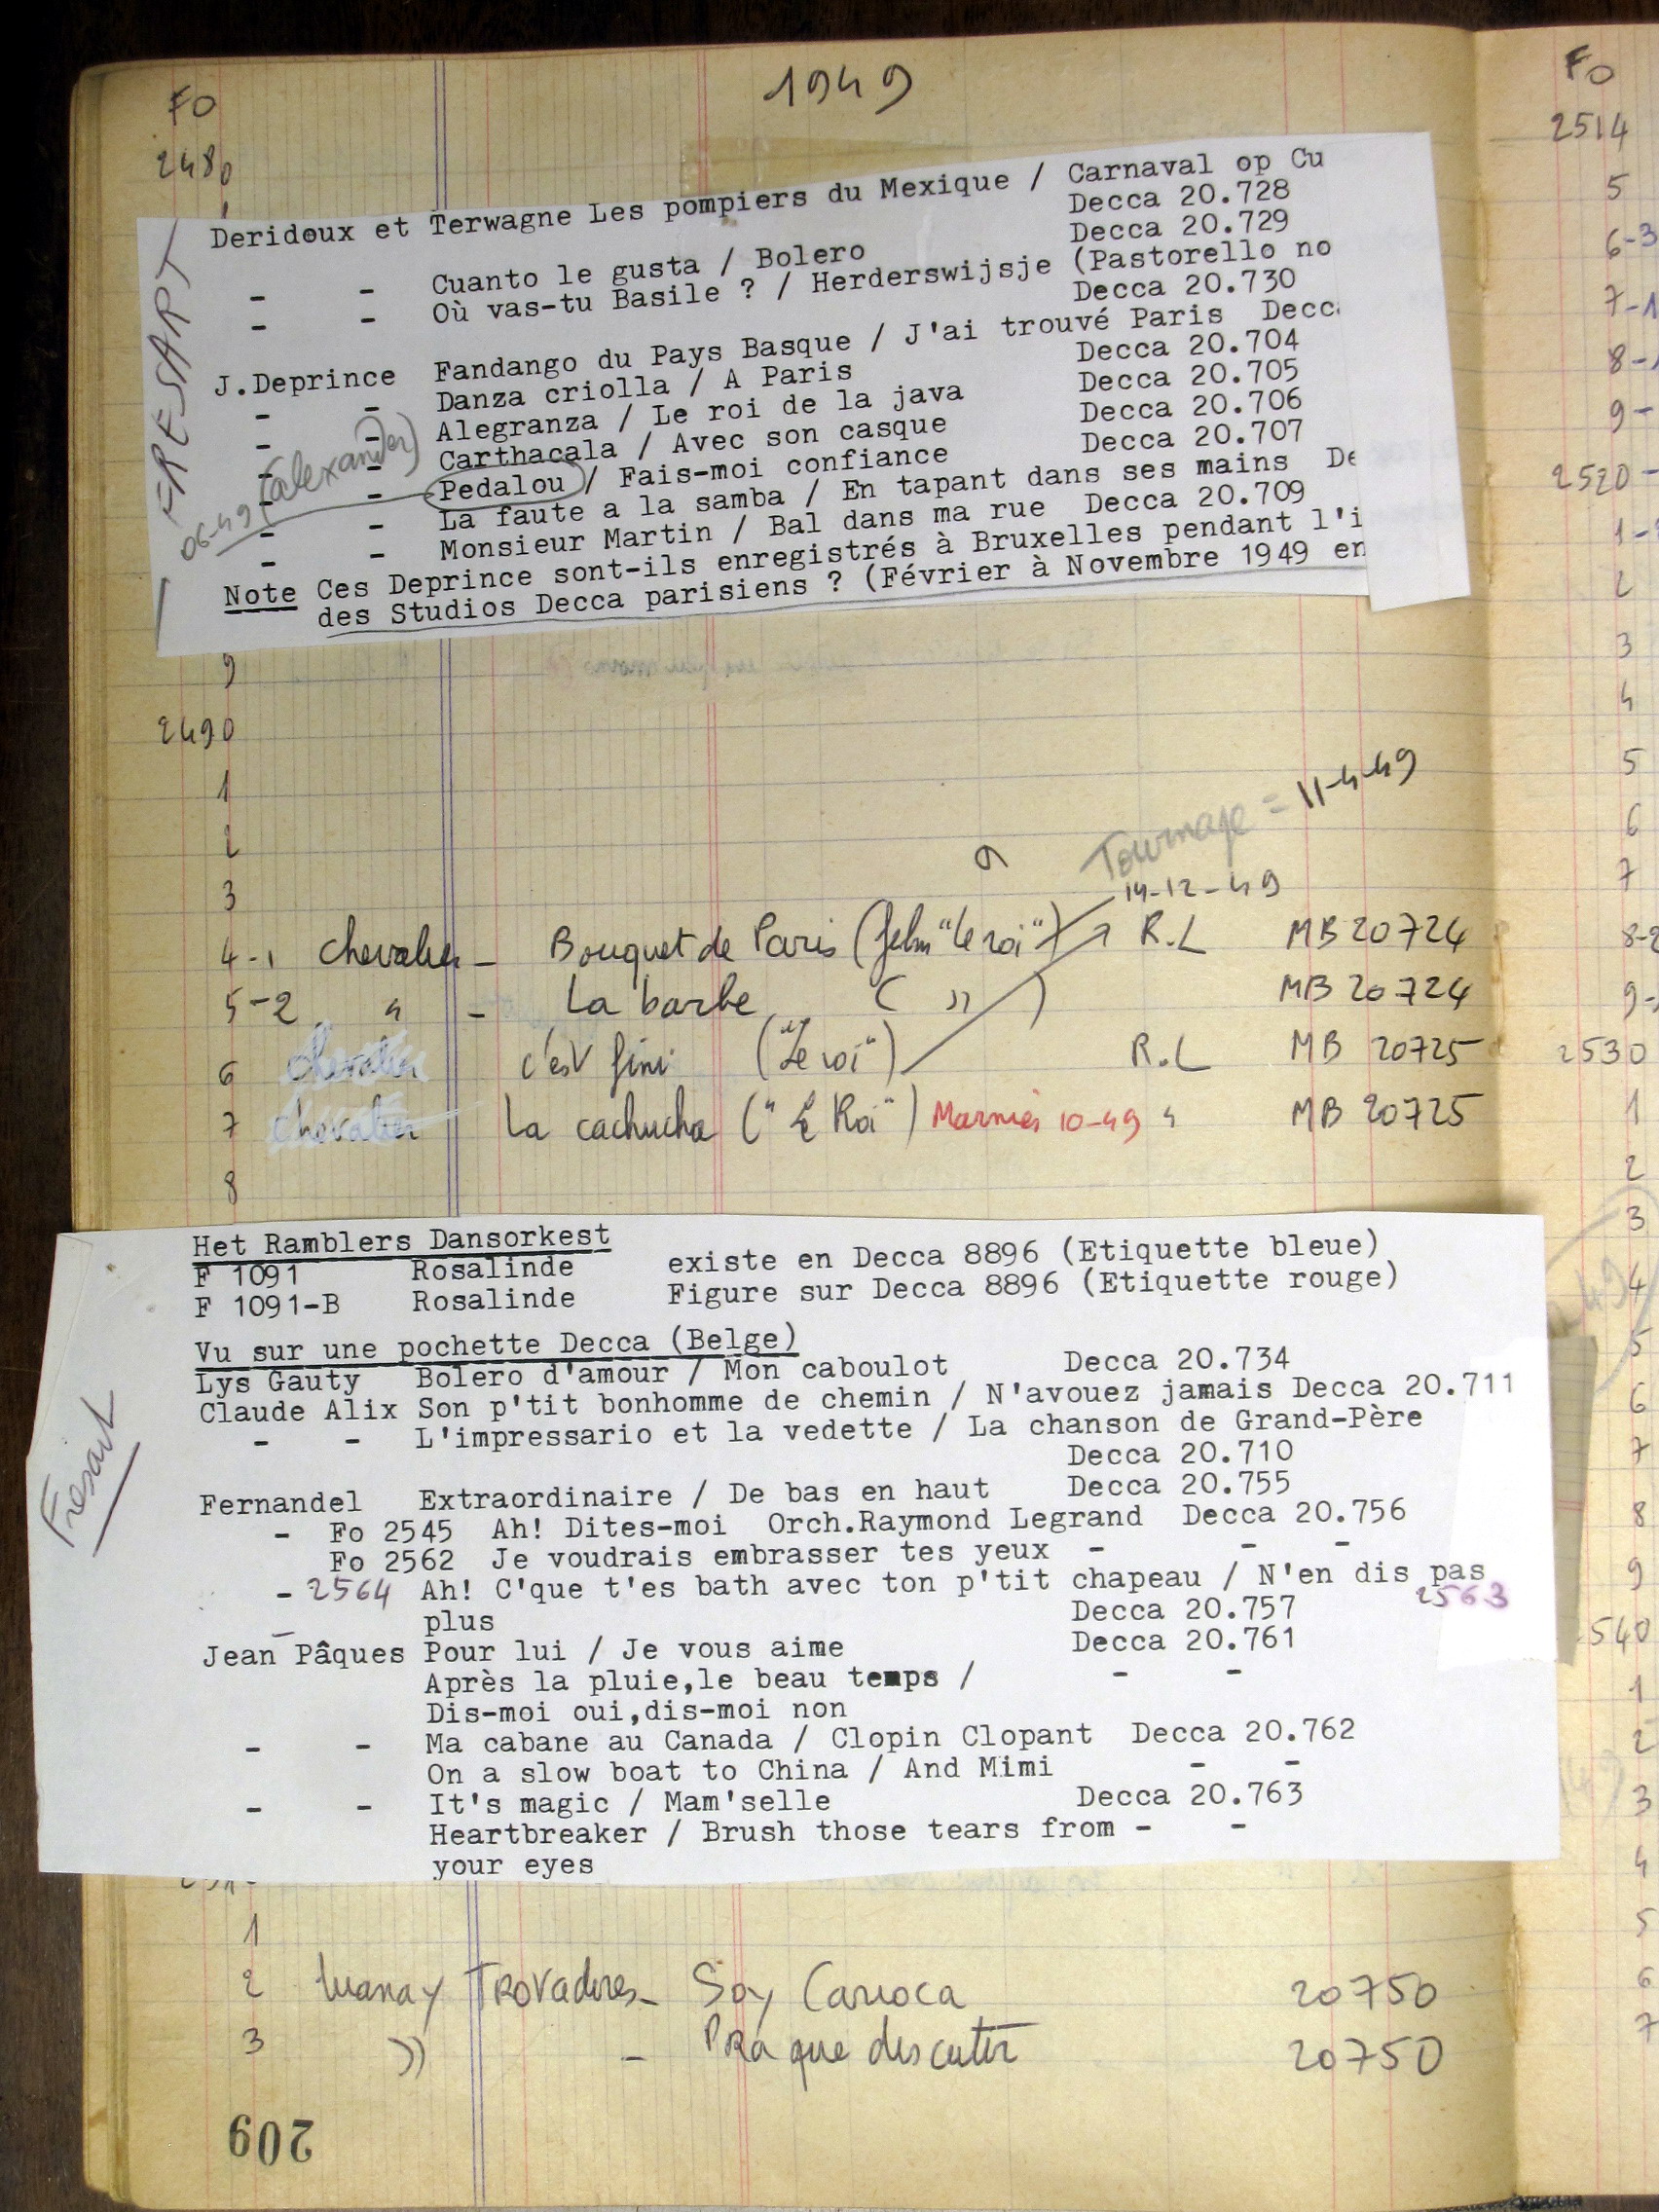 1949
FO
2480
Deridoux et Terwagne Les pompiers du Mexique / Carnaval op Cu
Decca 20.728
- - Cuanto le gusta / Bolero Decca 20.729
- - Où vas-tu Basile ? / Herderswijsje (Pastorello no
Decca 20.730
J.Deprince Fandango du Pays Basque / J'ai trouvé Paris Decca
- - Danza criolla / A Paris Decca 20.704
- - Alegranza / Le roi de la java Decca 20.705
- - Carthacala / Avec son casque Decca 20.706
- - Pedalou / Fais-moi confiance Decca 20.707
- - La faute a la samba / En tapant dans ses mains De
- - Monsieur Martin / Bal dans ma rue Decca 20.709
Note Ces Deprince sont-ils enregistrés à Bruxelles pendant l'i
des Studios Decca parisiens ? (Février à Novembre 1949 en
FRESART
06-49 (alexander)
9
2490
1
2
3
Tournage = 11-4-49
14-12-49
4-1 Chevalier - Bouquet de Paris (film "le roi") R.L MB 20724
5-2 " - La barbe ( " ) MB 20724
6 Chevalier c'est fini ("Le roi") R.L MB 20725
7 Chevalier La cachucha ("Le Roi") Marnies 10-49 " MB 20725
8
Het Ramblers Dansorkest
F 1091 Rosalinde existe en Decca 8896 (Etiquette bleue)
F 1091-B Rosalinde Figure sur Decca 8896 (Etiquette rouge)
Vu sur une pochette Decca (Belge)
Lys Gauty Bolero d'amour / Mon caboulot Decca 20.734
Claude Alix Son p'tit bonhomme de chemin / N'avouez jamais Decca 20.711
- - L'impressario et la vedette / La chanson de Grand-Père
Decca 20.710
Fernandel Extraordinaire / De bas en haut Decca 20.755
- Fo 2545 Ah! Dites-moi Orch.Raymond Legrand Decca 20.756
Fo 2562 Je voudrais embrasser tes yeux - - -
- 2564 Ah! C'que t'es bath avec ton p'tit chapeau / N'en dis pas
2563
plus Decca 20.757
Jean Pâques Pour lui / Je vous aime Decca 20.761
Après la pluie,le beau temps / - -
Dis-moi oui,dis-moi non
- - Ma cabane au Canada / Clopin Clopant Decca 20.762
On a slow boat to China / And Mimi - -
- - It's magic / Mam'selle Decca 20.763
Heartbreaker / Brush those tears from - -
your eyes
Fresart
1
2 Luana y Trovadores - Soy Carioca 20750
3 " - Pra que discutir 20750
209
FO
2514
5
6-3
7-1
8-1
9-
2520-
1-
2
3
4
5
6
7
8-2
9-
2530
1
2
3
4
5
6
7
8
9
540
1
2
3
4
5
6
7